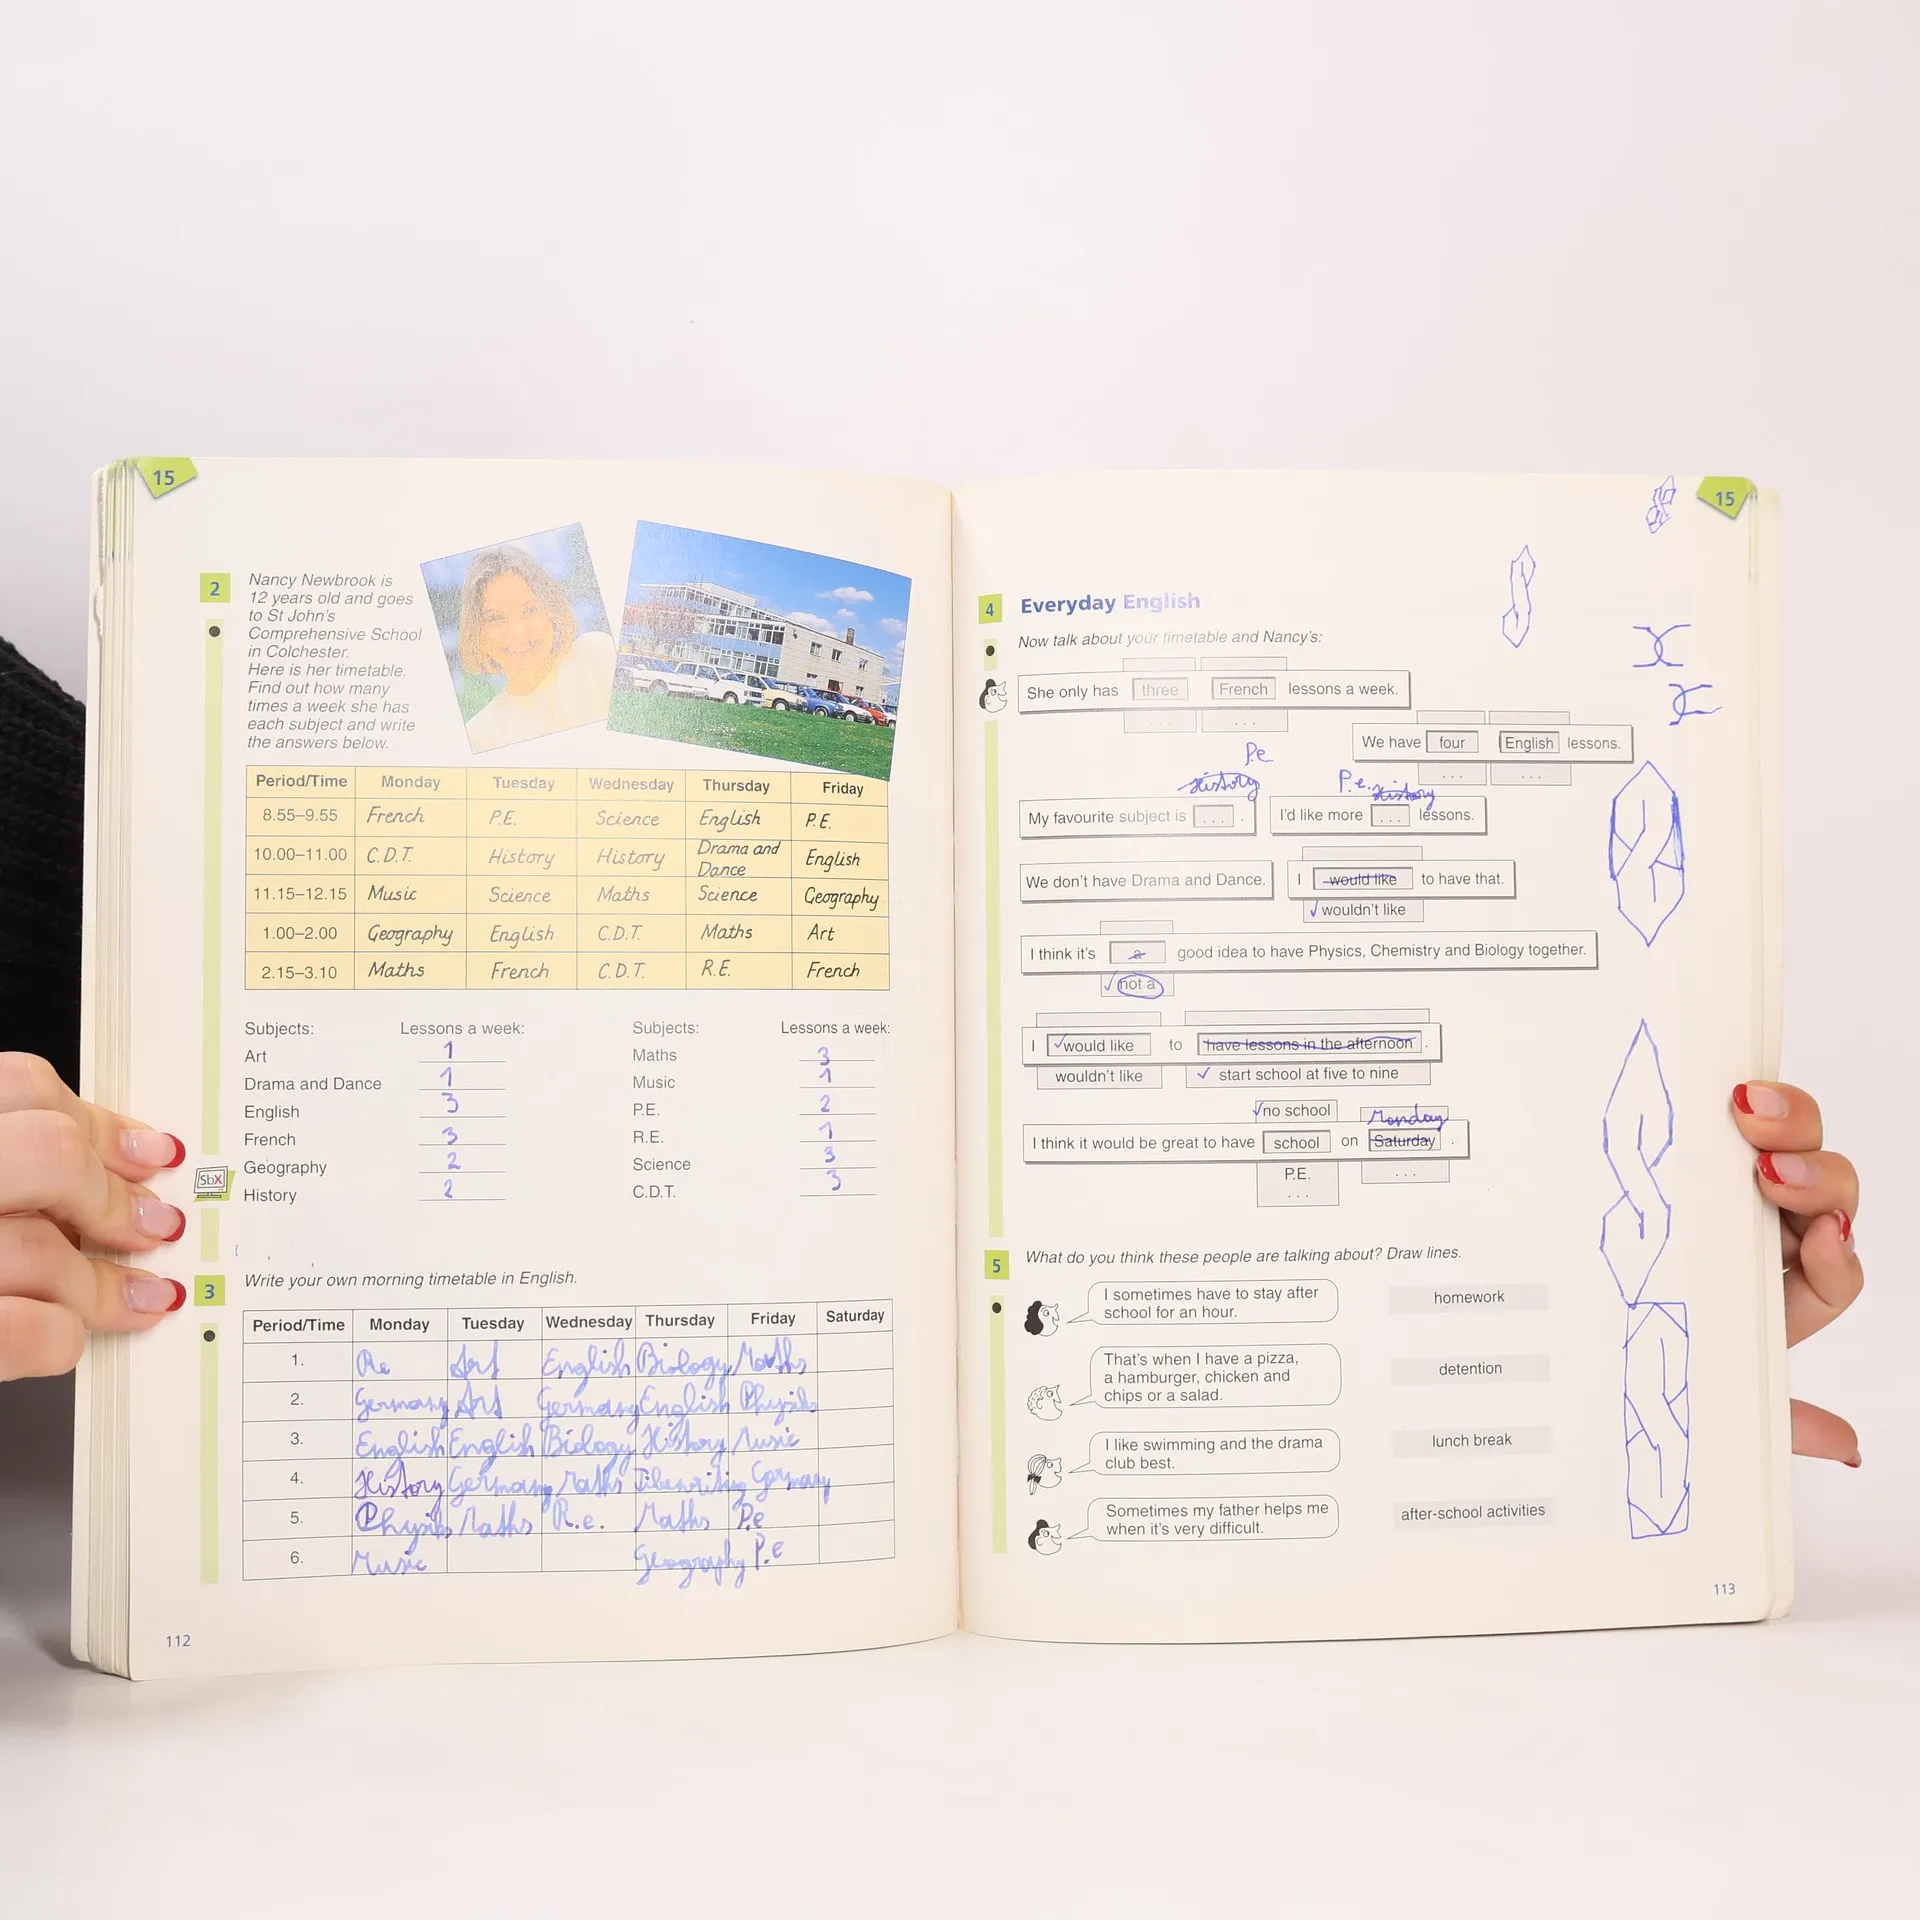 15
2
Nancy Newbrook is
12 years old and goes
to St John's
Comprehensive School
in Colchester.
Here is her timetable.
Find out how many
times a week she has
each subject and write
the answers below.
Period/Time Monday Tuesday Wednesday Thursday Friday
8.55–9.55 French P.E. Science English P.E.
10.00–11.00 C.D.T. History History Drama and Dance English
11.15–12.15 Music Science Maths Science Geography
1.00–2.00 Geography English C.D.T. Maths Art
2.15–3.10 Maths French C.D.T. R.E. French
Subjects: Lessons a week: Subjects: Lessons a week:
Art 1 Maths 3
Drama and Dance 1 Music 1
English 3 P.E. 2
French 3 R.E. 1
Geography 2 Science 3
History 2 C.D.T. 3
SbX
3
Write your own morning timetable in English.
Period/Time Monday Tuesday Wednesday Thursday Friday Saturday
1. Re Art English Biology Maths
2. Germany Art Germany English Physik
3. English English Biology History Music
4. History Germany Maths Germany
5. Physik Maths R.e. Maths P.e
6. Music Geography P.e
112
15
4
Everyday English
Now talk about your timetable and Nancy's:
She only has three French lessons a week.
... ...
We have four English lessons.
... ...
P.e
History P.e. History
My favourite subject is ... . I'd like more ... lessons.
We don't have Drama and Dance. I would like to have that.
wouldn't like
I think it's a good idea to have Physics, Chemistry and Biology together.
not a
I would like to have lessons in the afternoon .
wouldn't like start school at five to nine
no school Monday
I think it would be great to have school on Saturday .
P.E.
... ...
5
What do you think these people are talking about? Draw lines.
I sometimes have to stay after
school for an hour.
homework
That's when I have a pizza,
a hamburger, chicken and
chips or a salad.
detention
I like swimming and the drama
club best.
lunch break
Sometimes my father helps me
when it's very difficult.
after-school activities
113